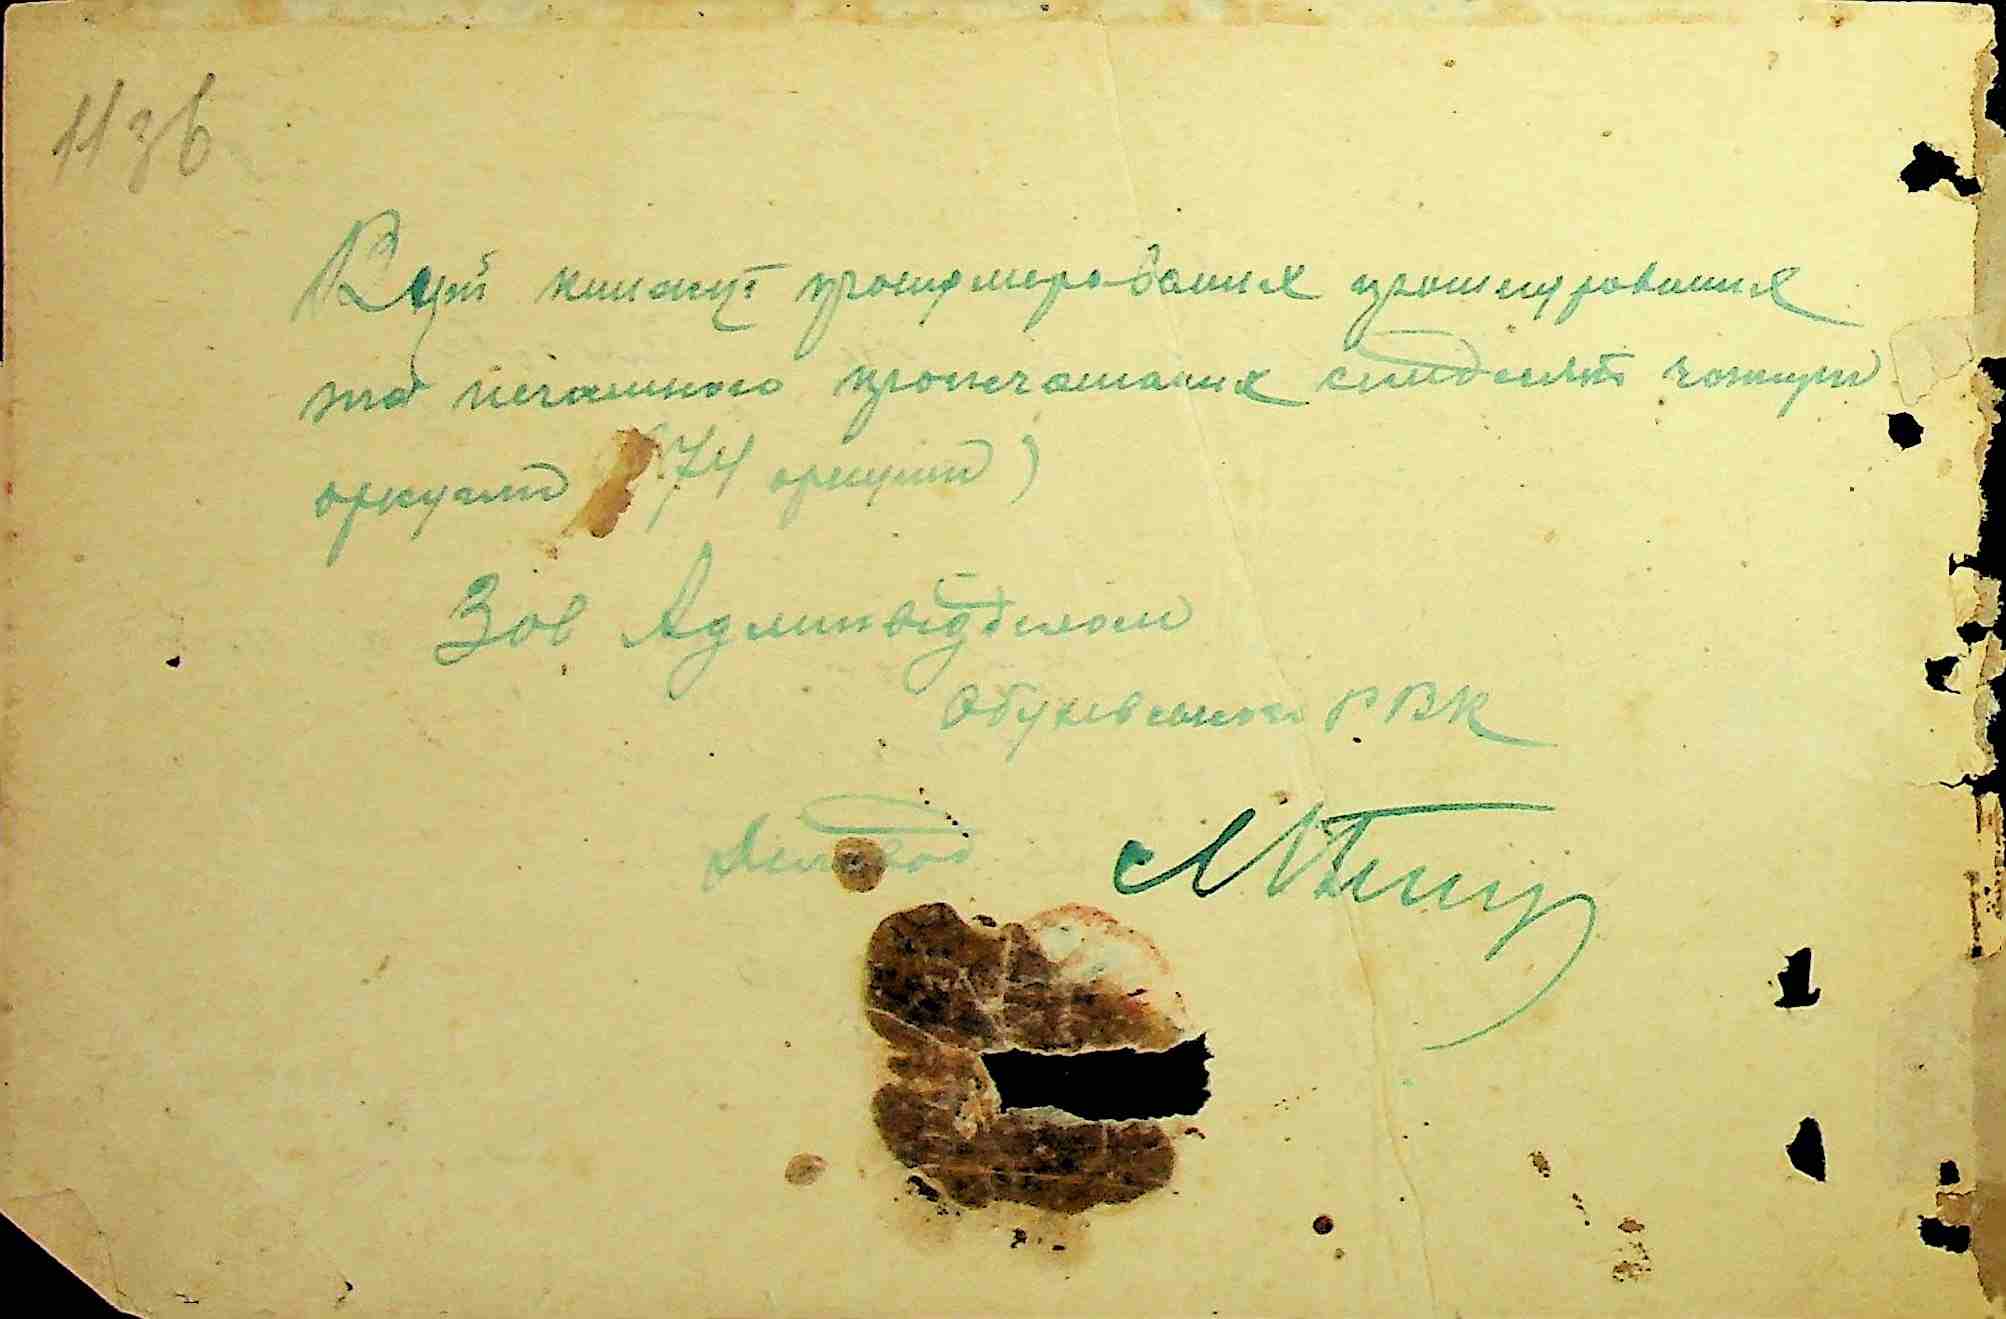 11 зв
В цій книжці пронумерованих прошнурованих
та печаткою пропечатаних сімдесят чотири
аркуші (74 аркуші)
Зав Адмінвідділом
Обухівського РВК
Діловод